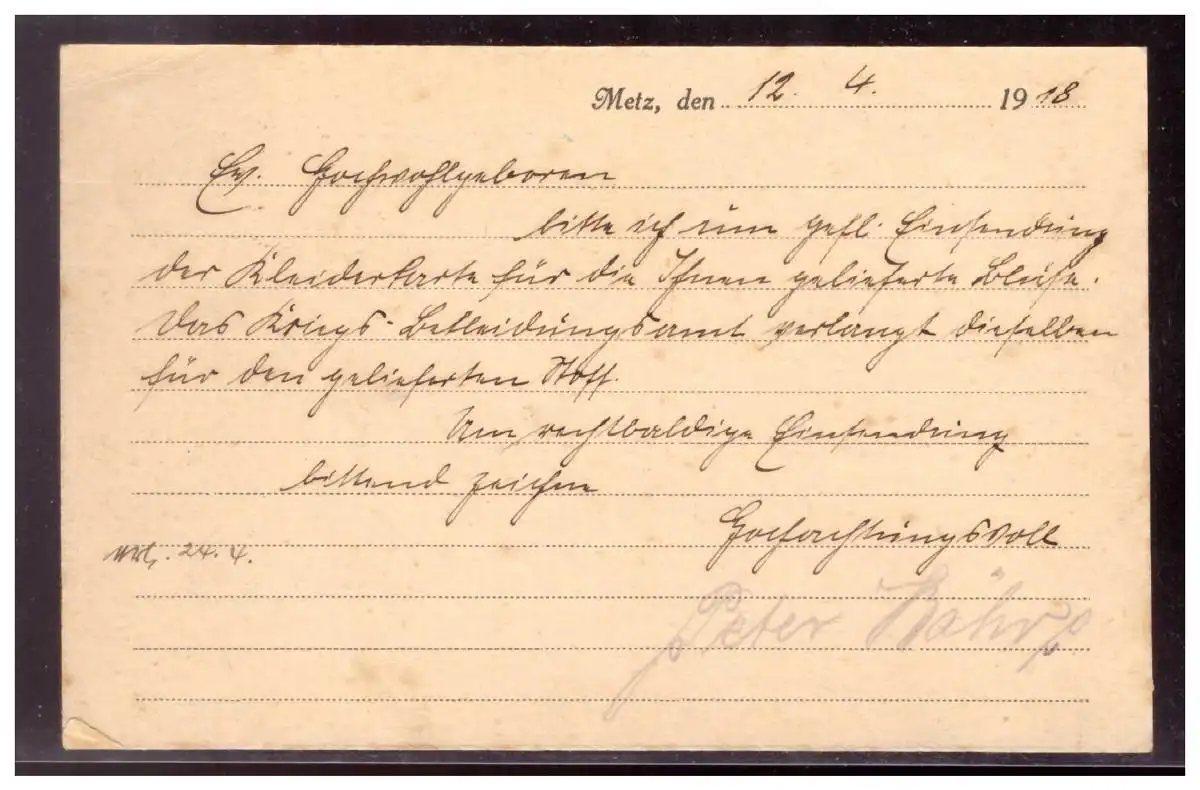 Metz, den 12. 4. 1918
Ew. Hochwohlgeboren
bitte ich um gefl. Einsendung
der Kleiderkarte für die Ihnen gelieferte Bluse.
Das Kriegs-Bekleidungsamt verlangt dieselben
für den gelieferten Stoff.
Um rechtbaldige Einsendung
bittend zeichne
Hochachtungsvoll
24. 4.
Peter